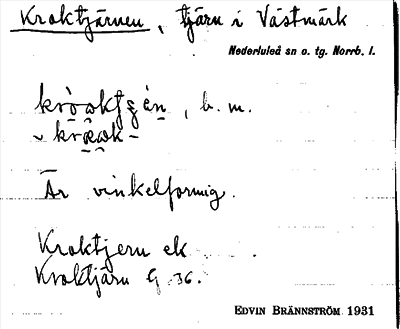 Kroktjärnen, tjärn i Västmärk
Nederluleå sn o. tg. Norrb. l.
, b. m.
Är vinkelformig.
Kroktjern ek
Kroktjärn G. 36.
EDVIN BRÄNNSTRÖM 1931